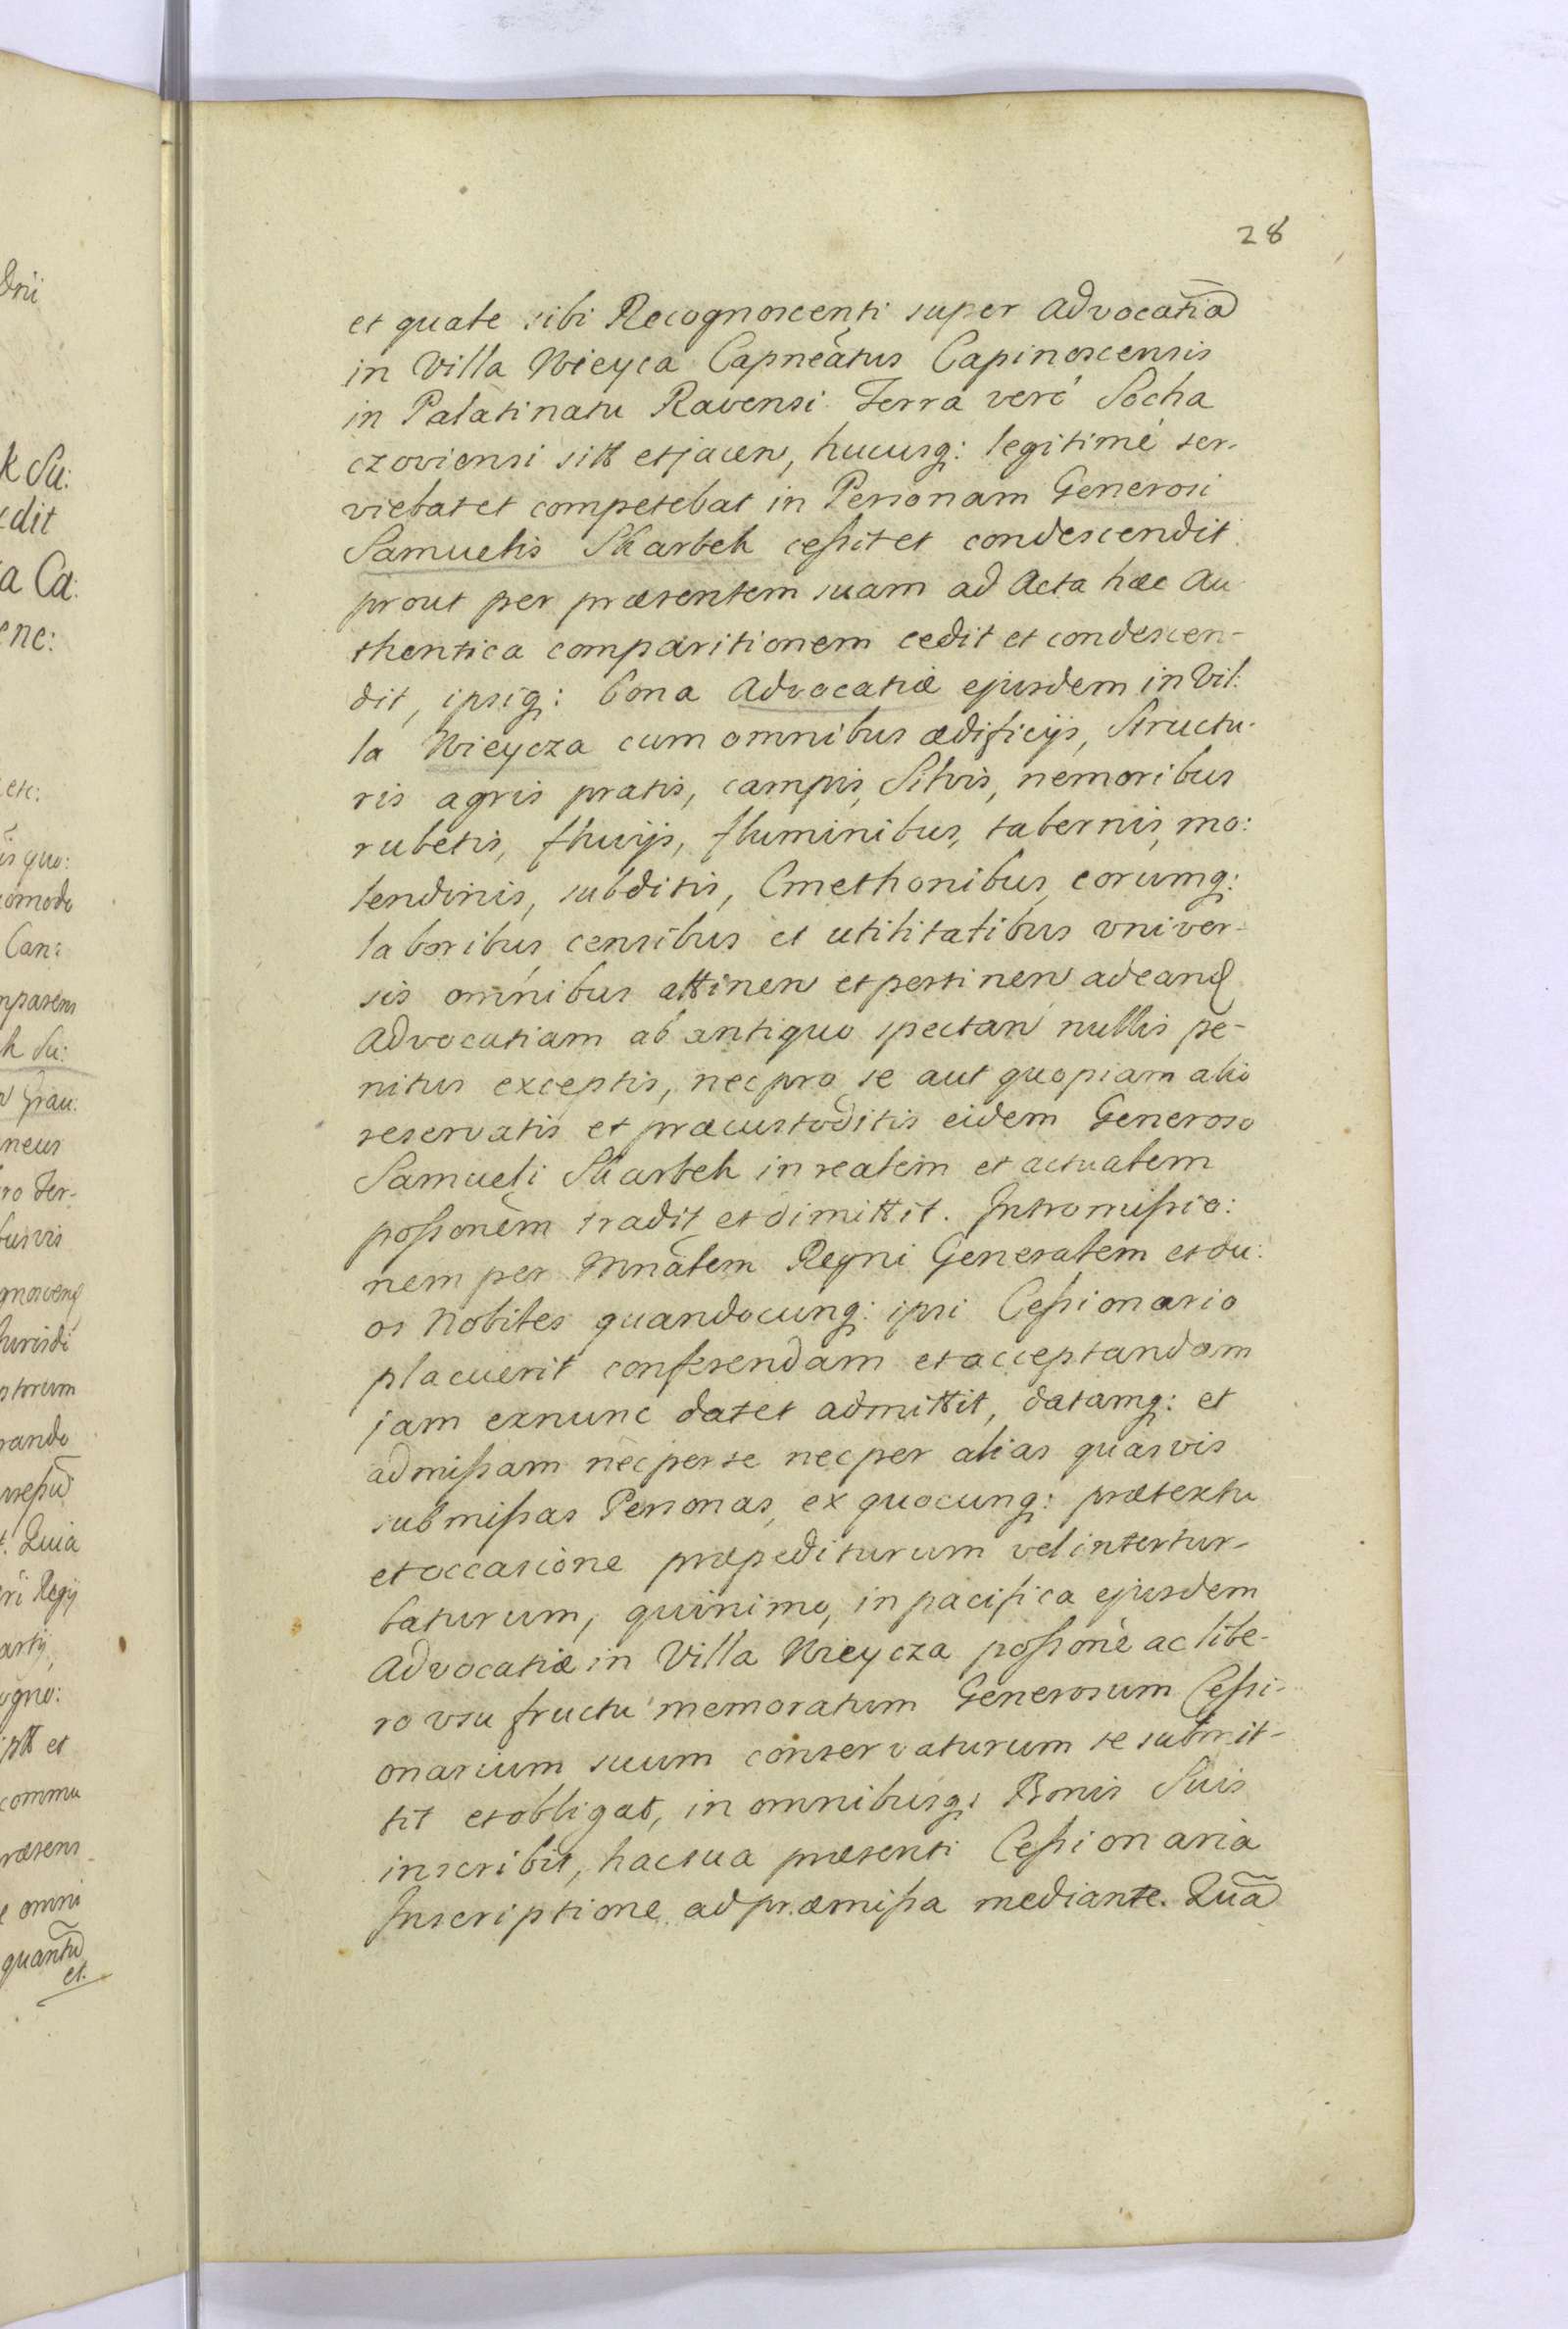 28
et quale sibi Recognoscenti super advocatiã
in Villa Wieyca Capneãtus Capinoscensis
in Palatinatu Ravensi Terra veró Socha
czoviensi sitt et jacen, hucusq: legitimé ser-
viebat et competebat in Personam Generosi
Samuelis Skarbek ceſsit et condescendit
prout per præsentem suam ad Acta hæc Au
thentica comparitionem cedit et condescen-
dit, ipsiq: bona Advocatiæ ejusdem in Vil:
la Wieycza cum omnibus ædificijs, Structu-
ris agris pratis, campis, Silvis, nemoribus
rubetis, fluvijs, fluminibus, tabernis, mo:
lendinis, subditis, Cmethonibus, eorumq:
laboribus, censibus et utilitatibus univer-
sis omnibus attinen et pertinen ad eand
Advocatiam ab antiquo spectan nullis pe-
nitus exceptis, nec pro se aut quopiam alio
reservatis et præcustoditis eidem Generoso
Samueli Skarbek in realem et actualem
poſsonẽm tradit et dimittit. Intromiſsio:
nem per Mnãlem Regni Generalem et du:
os Nobiles quandocunq: ipsi Ceſsionario
placuerit conferendam et acceptandam
jam exnunc dat et admittit, datamq: et
admiſsam nec per se nec per alias quasvis
submiſsas Personas, ex quocunq: prætextu
et occasione præpediturum vel intertur-
baturum, quinimo, in pacifica ejusdem
Advocatiæ in Villa Wieycza poſsonẽ ac libe-
ro usu fructu memoratum Generosum Ceſsi-
onarium suum conservaturum se submit-
tit et obligat, in omnibusq: Bonis Suis
inscribit, hac sua præsenti Ceſsionaria
Inscriptione ad præmiſsa mediante. Quã
Dnĩ
k Su:
a Ca:
etc:
Can:
k Su:
neus
ro Ter-
rando
Quia
ri Regij
commu
omni
quantũ
et.